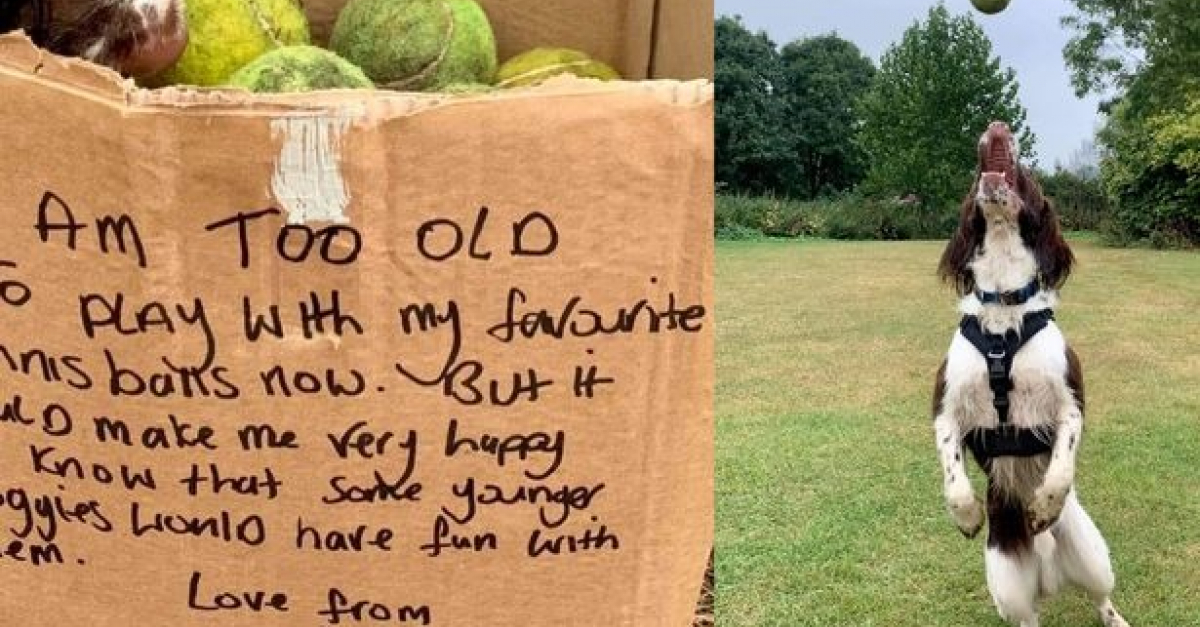 AM TOO OLD
O PLAY WITH my favourite
nnis balls now. But it
ULD make me very happy
Know that some younger
ggies would have fun with
em.
Love from